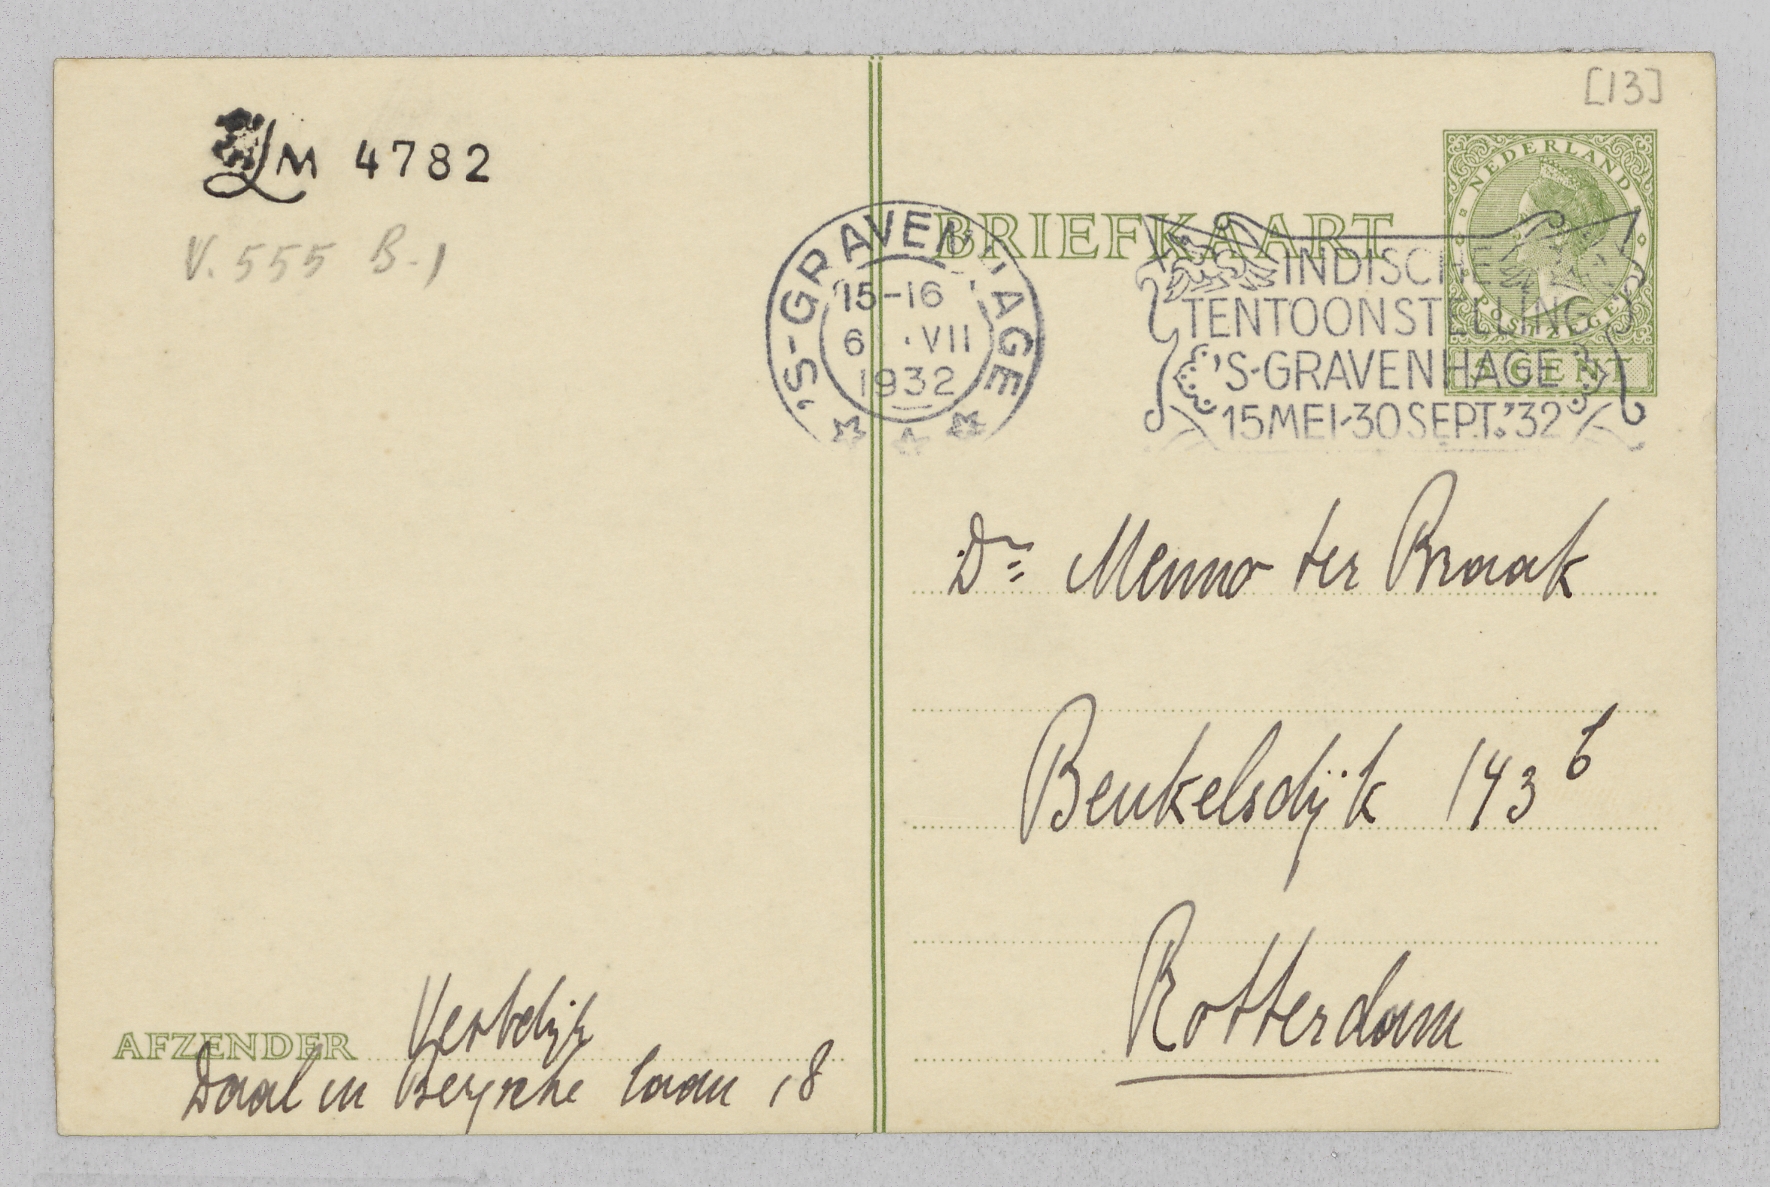 [13]
LM 4782
V. 555 B.1
BRIEFKAART
NEDERLAND
POSTZEGEL
CENT
'S-GRAVENHAGE
15-16
6 .VII
1932
INDISCHE
TENTOONSTELLING
'S-GRAVENHAGE
15 MEI-30 SEPT. '32
Dr Menno ter Braak
Beukelsdijk 143 b
Rotterdam
AFZENDER Vestdijk
Daal en Bergsche laan 18